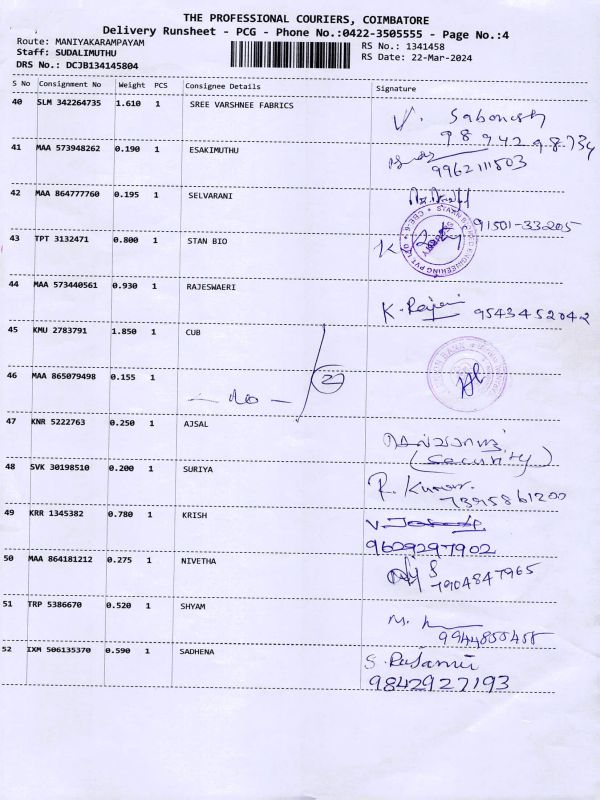 THE PROFESSIONAL COURIERS, COIMBATORE
Delivery Runsheet - PCG - Phone No.:0422-3505555 - Page No.:4
Route: MANIYAKARAMPAYAM
RS No.: 1341458
Staff: SUDALIMUTHU
RS Date: 22-Mar-2024
DRS No.: DCJB134145804
S No Consignment No Weight PCS Consignee Details Signature
40 SLM 342264735 1.610 1 SREE VARSHNEE FABRICS
V. Sabonesh
98942 98734
41 MAA 573948262 0.190 1 ESAKIMUTHU
9962111503
42 MAA 864777760 0.195 1 SELVARANI
91501-33205
43 TPT 3132471 0.800 1 STAN BIO
44 MAA 573440561 0.930 1 RAJESWAERI
K. Rajesi 9543452042
45 KMU 2783791 1.850 1 CUB
46 MAA 865079498 0.155 1
— do — 2
47 KNR 5222763 0.250 1 AJSAL
(Security)
48 SVK 30198510 0.200 1 SURIYA
R. Kumar.
7395861200
49 KRR 1345382 0.780 1 KRISH
9629297902
50 MAA 864181212 0.275 1 NIVETHA
7904847965
51 TRP 5386670 0.520 1 SHYAM
9944855455
52 IXM 506135370 0.590 1 SADHENA
9842927193